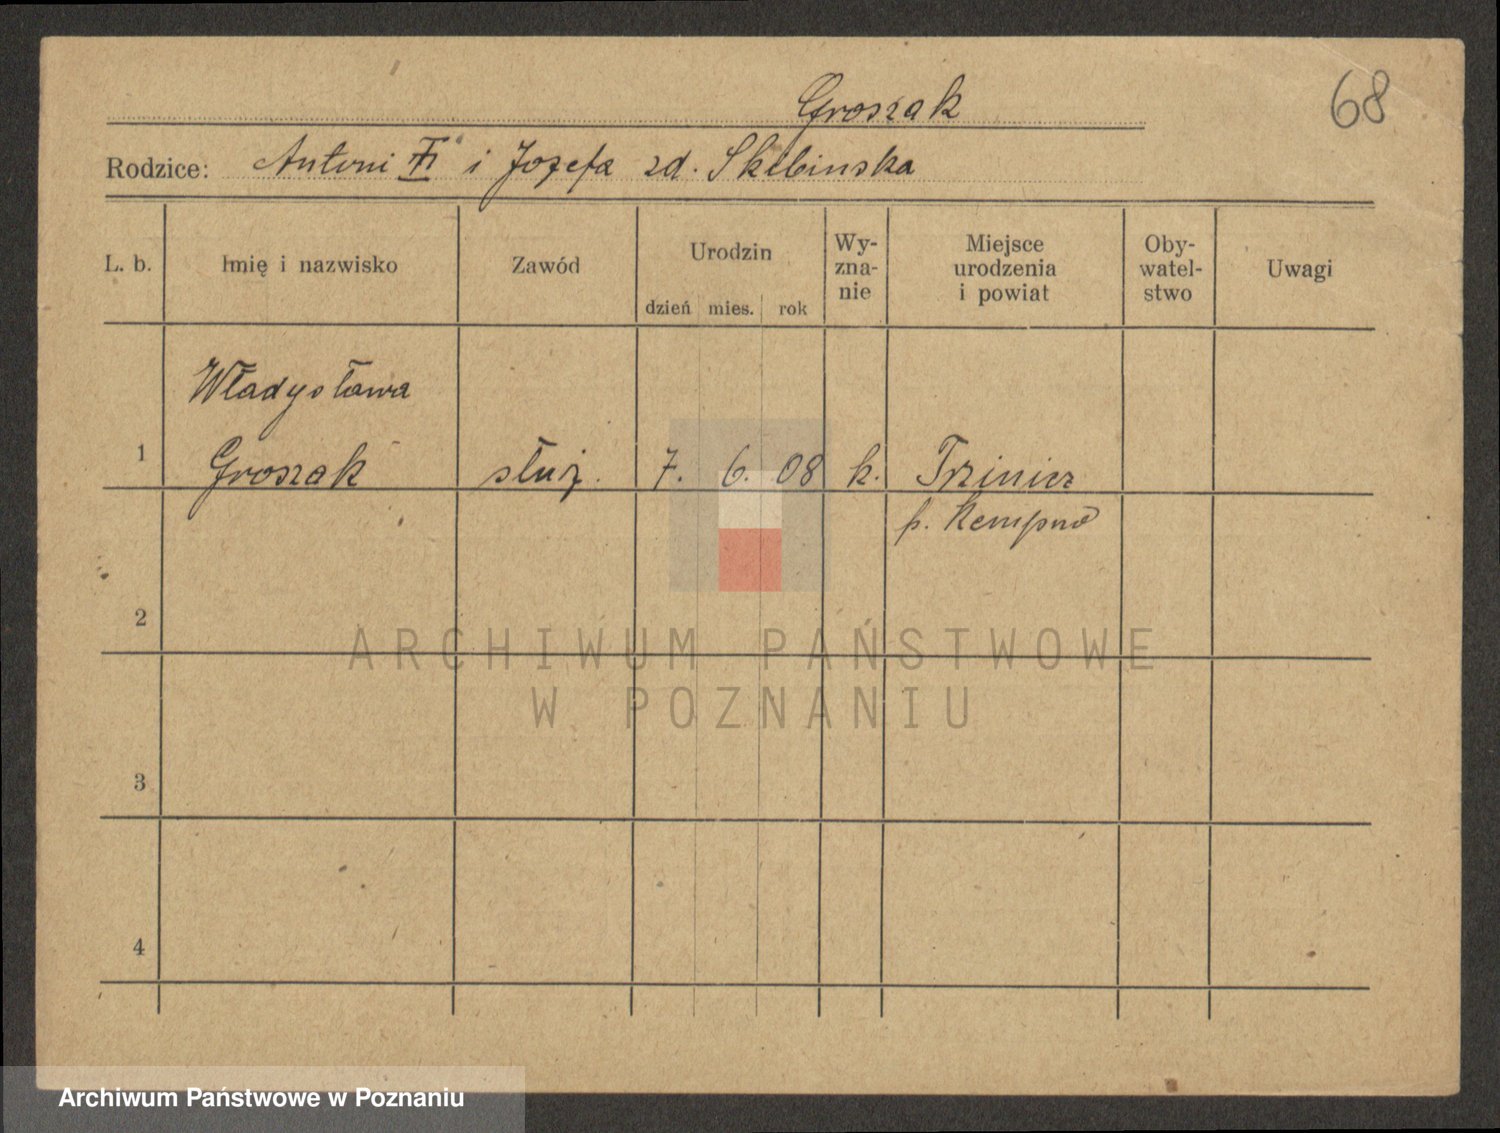 Groszak
68
Rodzice: Antoni i Jozefa zd. Skibinska
L. b. Imię i nazwisko Zawód Urodzin dzień mies. rok Wy-zna-nie Miejsce urodzenia i powiat Oby-watel-stwo Uwagi
Władysława
1 Groszak służ. 7. 6. 08 k. Trzinicz
p. Kempno
2
ARCHIWUM PAŃSTWOWE
W POZNANIU
3
4
Archiwum Państwowe w Poznaniu